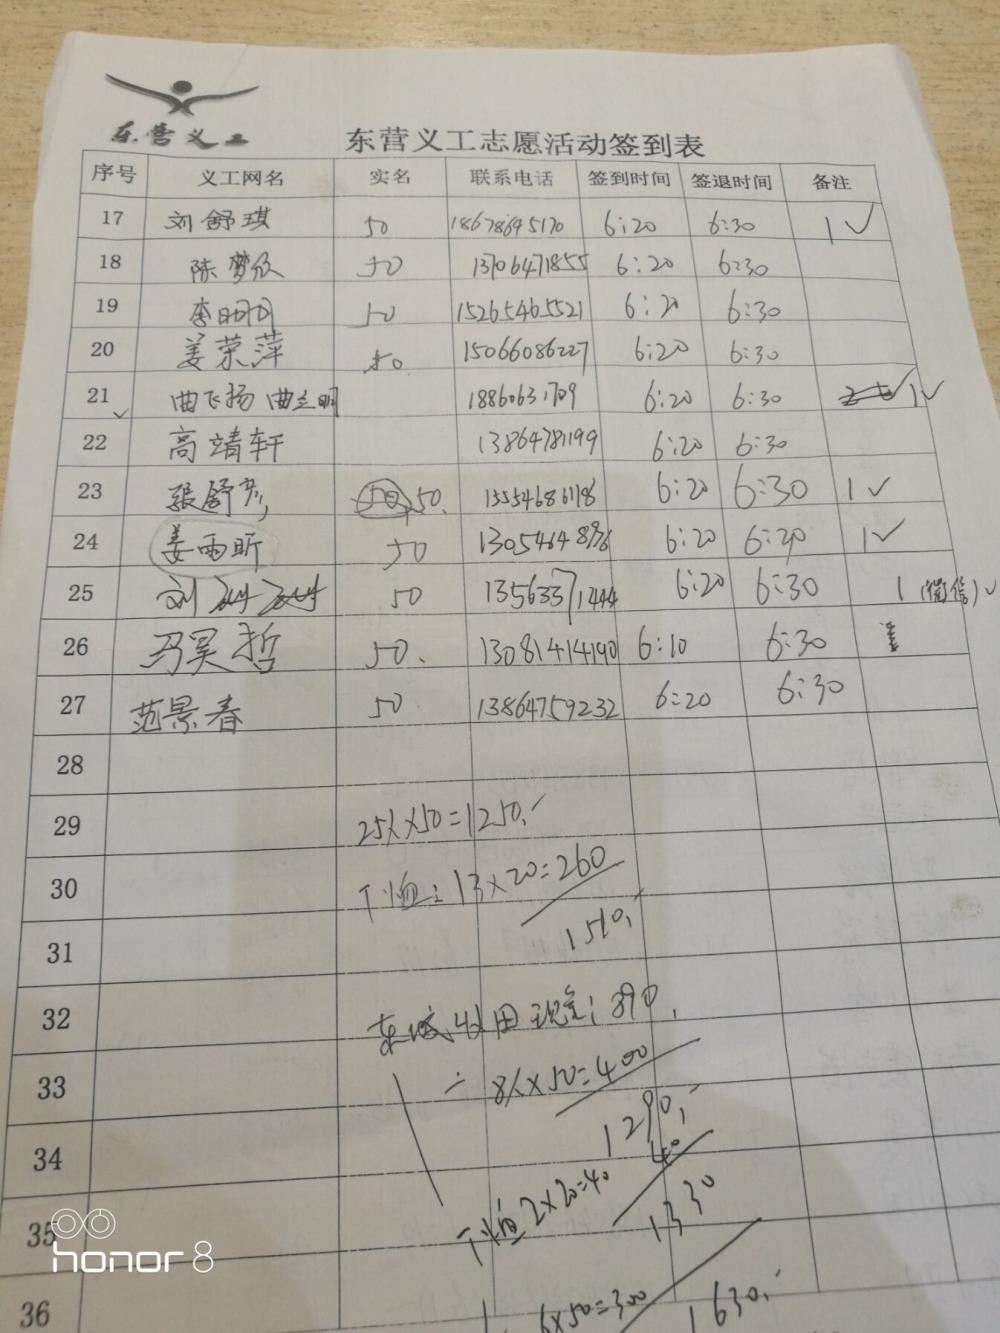 东营义工
东营义工志愿活动签到表
序号 义工网名 实名 联系电话 签到时间 签退时间 备注
17 刘舒琪 50 18678695170 6:20 6:30 1✓
18 陈梦欣 50 13706471855 6:20 6:30
19 李明 50 15265465521 6:20 6:30
20 姜荣萍 50 15066086227 6:20 6:30
21 ✓ 曲飞扬 曲立明 18860631709 6:20 6:30 1✓
22 高靖轩 13864781199 6:20 6:30
23 张舒 50 50. 15554686178 6:20 6:30 1✓
24 姜雨昕 50 13054648 6:20 6:20 1✓
25 刘 50 13563371444 6:20 6:30 1(微信)✓
26 冯昊哲 50. 13081414190 6:10 6:30
27 范景春 50 13864759232 6:20 6:30
28
29 25人×50=1250.
30 T恤:13×20=260
31 1510.
32 东城收用现金:890.
33 8人×50=400
1290.
34 40
T恤2×20=40
35 1330
honor 8
6×50=300
36 1630.